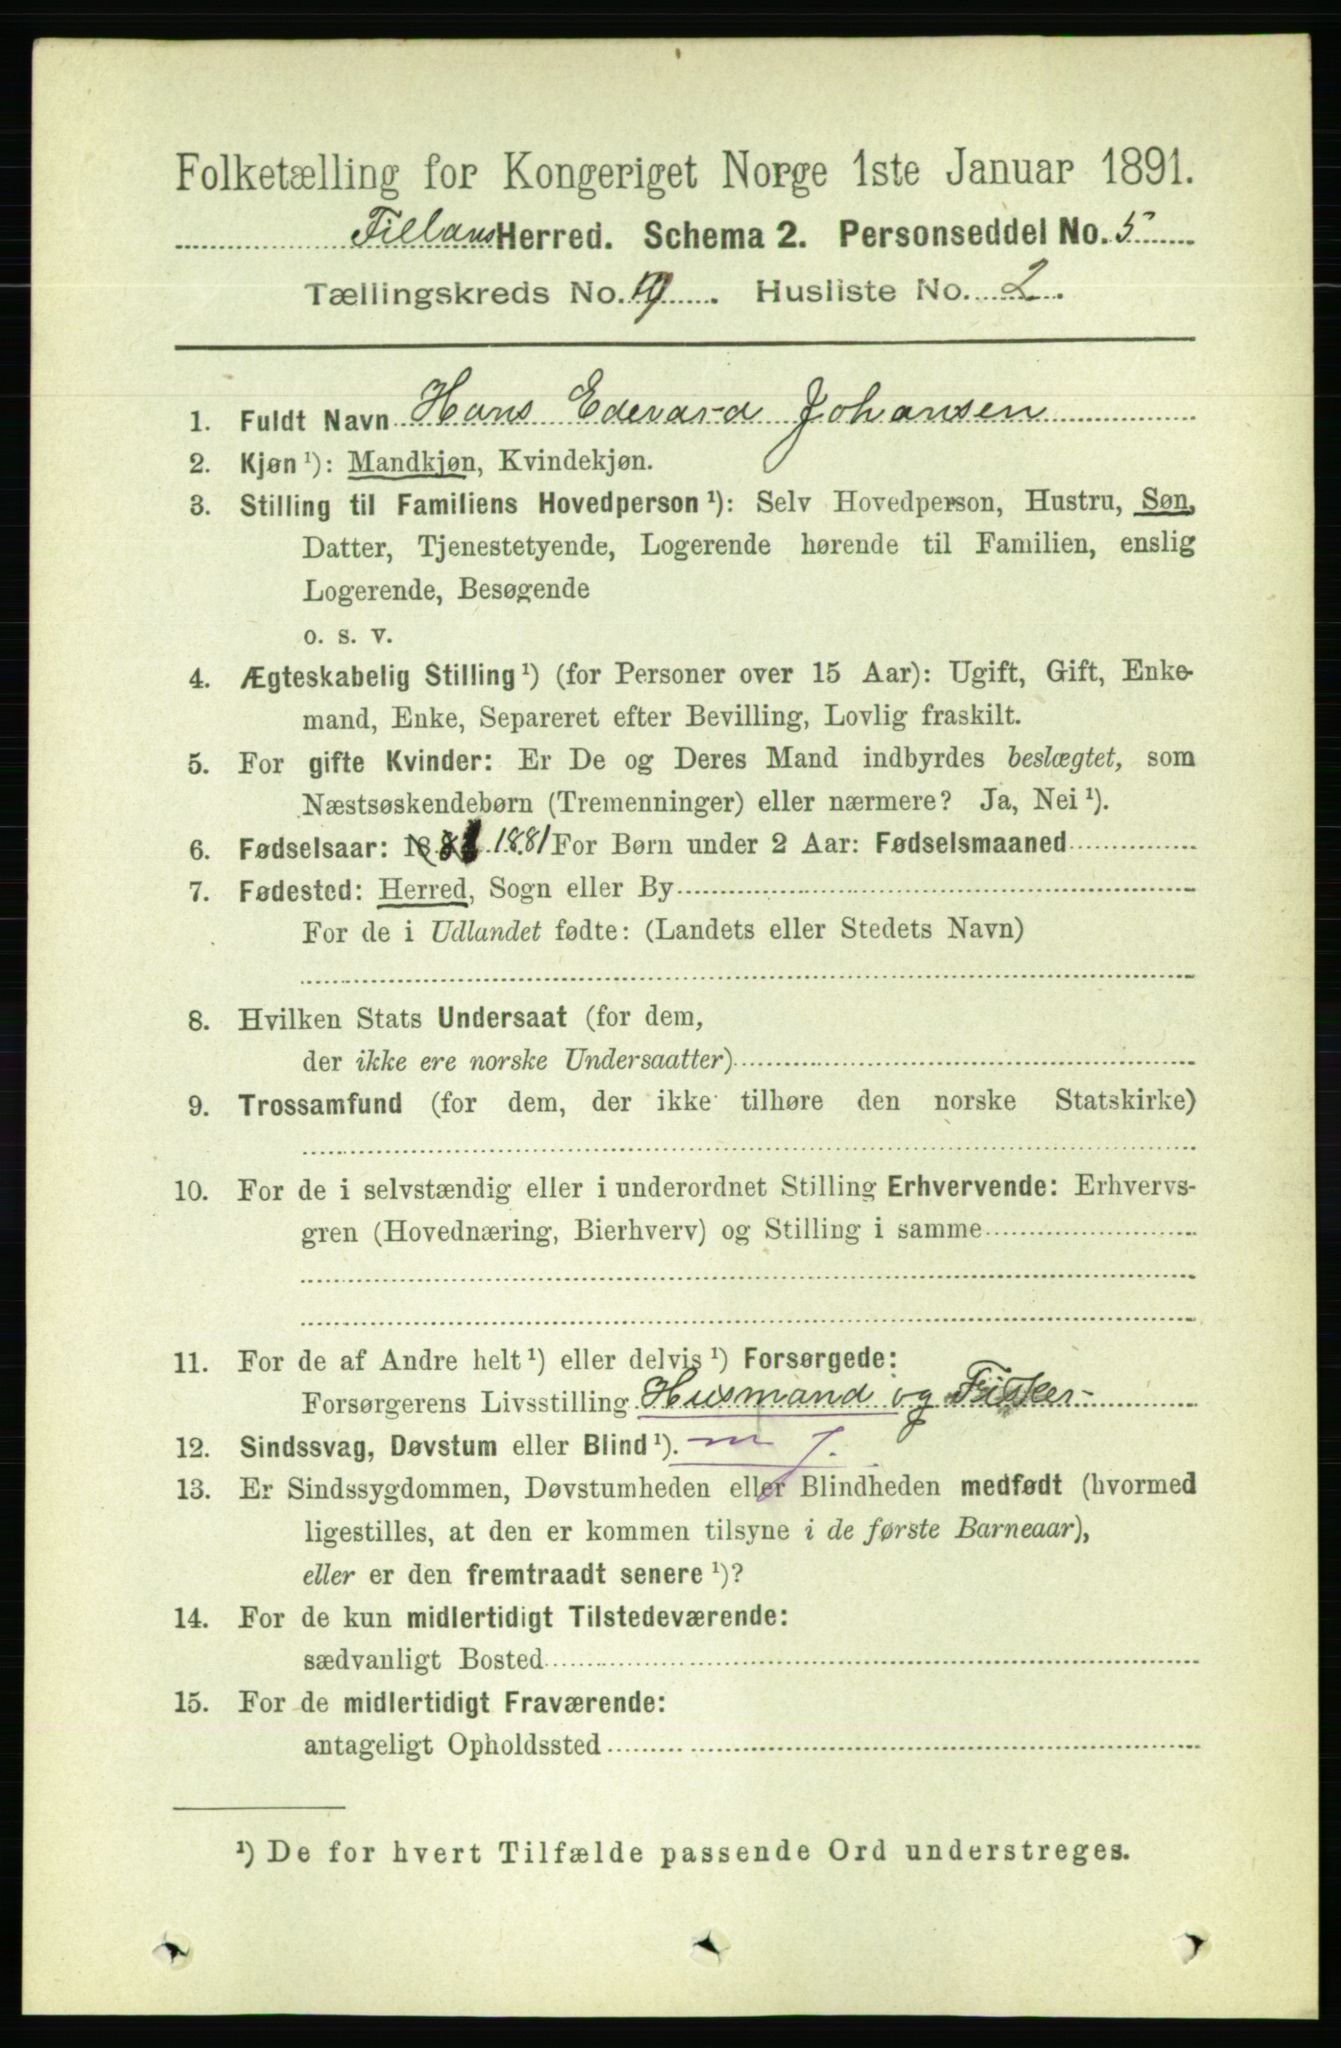 Folketælling for Kongeriget Norge 1ste Januar 1891.
Fillans Herred. Schema 2. Personseddel No. 5
Tællingskreds No. 19. Husliste No. 2.
1. Fuldt Navn Hans Edevard Johansen
2. Kjøn ¹): Mandkjøn, Kvindekjøn.
3. Stilling til Familiens Hovedperson ¹): Selv Hovedperson, Hustru, Søn,
Datter, Tjenestetyende, Logerende hørende til Familien, enslig
Logerende, Besøgende
o. s. v.
4. Ægteskabelig Stilling ¹) (for Personer over 15 Aar): Ugift, Gift, Enke-
mand, Enke, Separeret efter Bevilling, Lovlig fraskilt.
5. For gifte Kvinder: Er De og Deres Mand indbyrdes beslægtet, som
Næstsøskendebørn (Tremenninger) eller nærmere? Ja, Nei ¹).
6. Fødselsaar: 1881 For Børn under 2 Aar: Fødselsmaaned
7. Fødested: Herred, Sogn eller By
For de i Udlandet fødte: (Landets eller Stedets Navn)
8. Hvilken Stats Undersaat (for dem,
der ikke ere norske Undersaatter)
9. Trossamfund (for dem, der ikke tilhøre den norske Statskirke)
10. For de i selvstændig eller i underordnet Stilling Erhvervende: Erhvervs-
gren (Hovednæring, Bierhverv) og Stilling i samme
11. For de af Andre helt ¹) eller delvis ¹) Forsørgede:
Forsørgerens Livsstilling Husmand og Fisker
12. Sindssvag, Døvstum eller Blind ¹).
13. Er Sindssygdommen, Døvstumheden eller Blindheden medfødt (hvormed
ligestilles, at den er kommen tilsyne i de første Barneaar),
eller er den fremtraadt senere ¹)?
14. For de kun midlertidigt Tilstedeværende:
sædvanligt Bosted
15. For de midlertidigt Fraværende:
antageligt Opholdssted
¹) De for hvert Tilfælde passende Ord understreges.